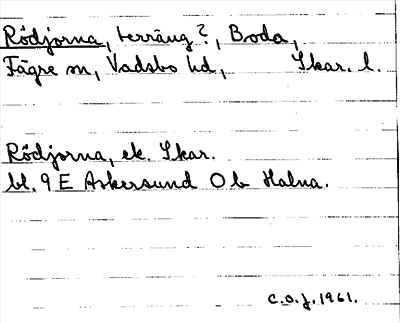 Rödjorna, terräng?, Boda,
Fägre sn, Vadsbo hd, Skar. l.
Rödjorna, ek. Skar.
bl. 9 E Askersund O b Halna.
C.O.J. 1961.